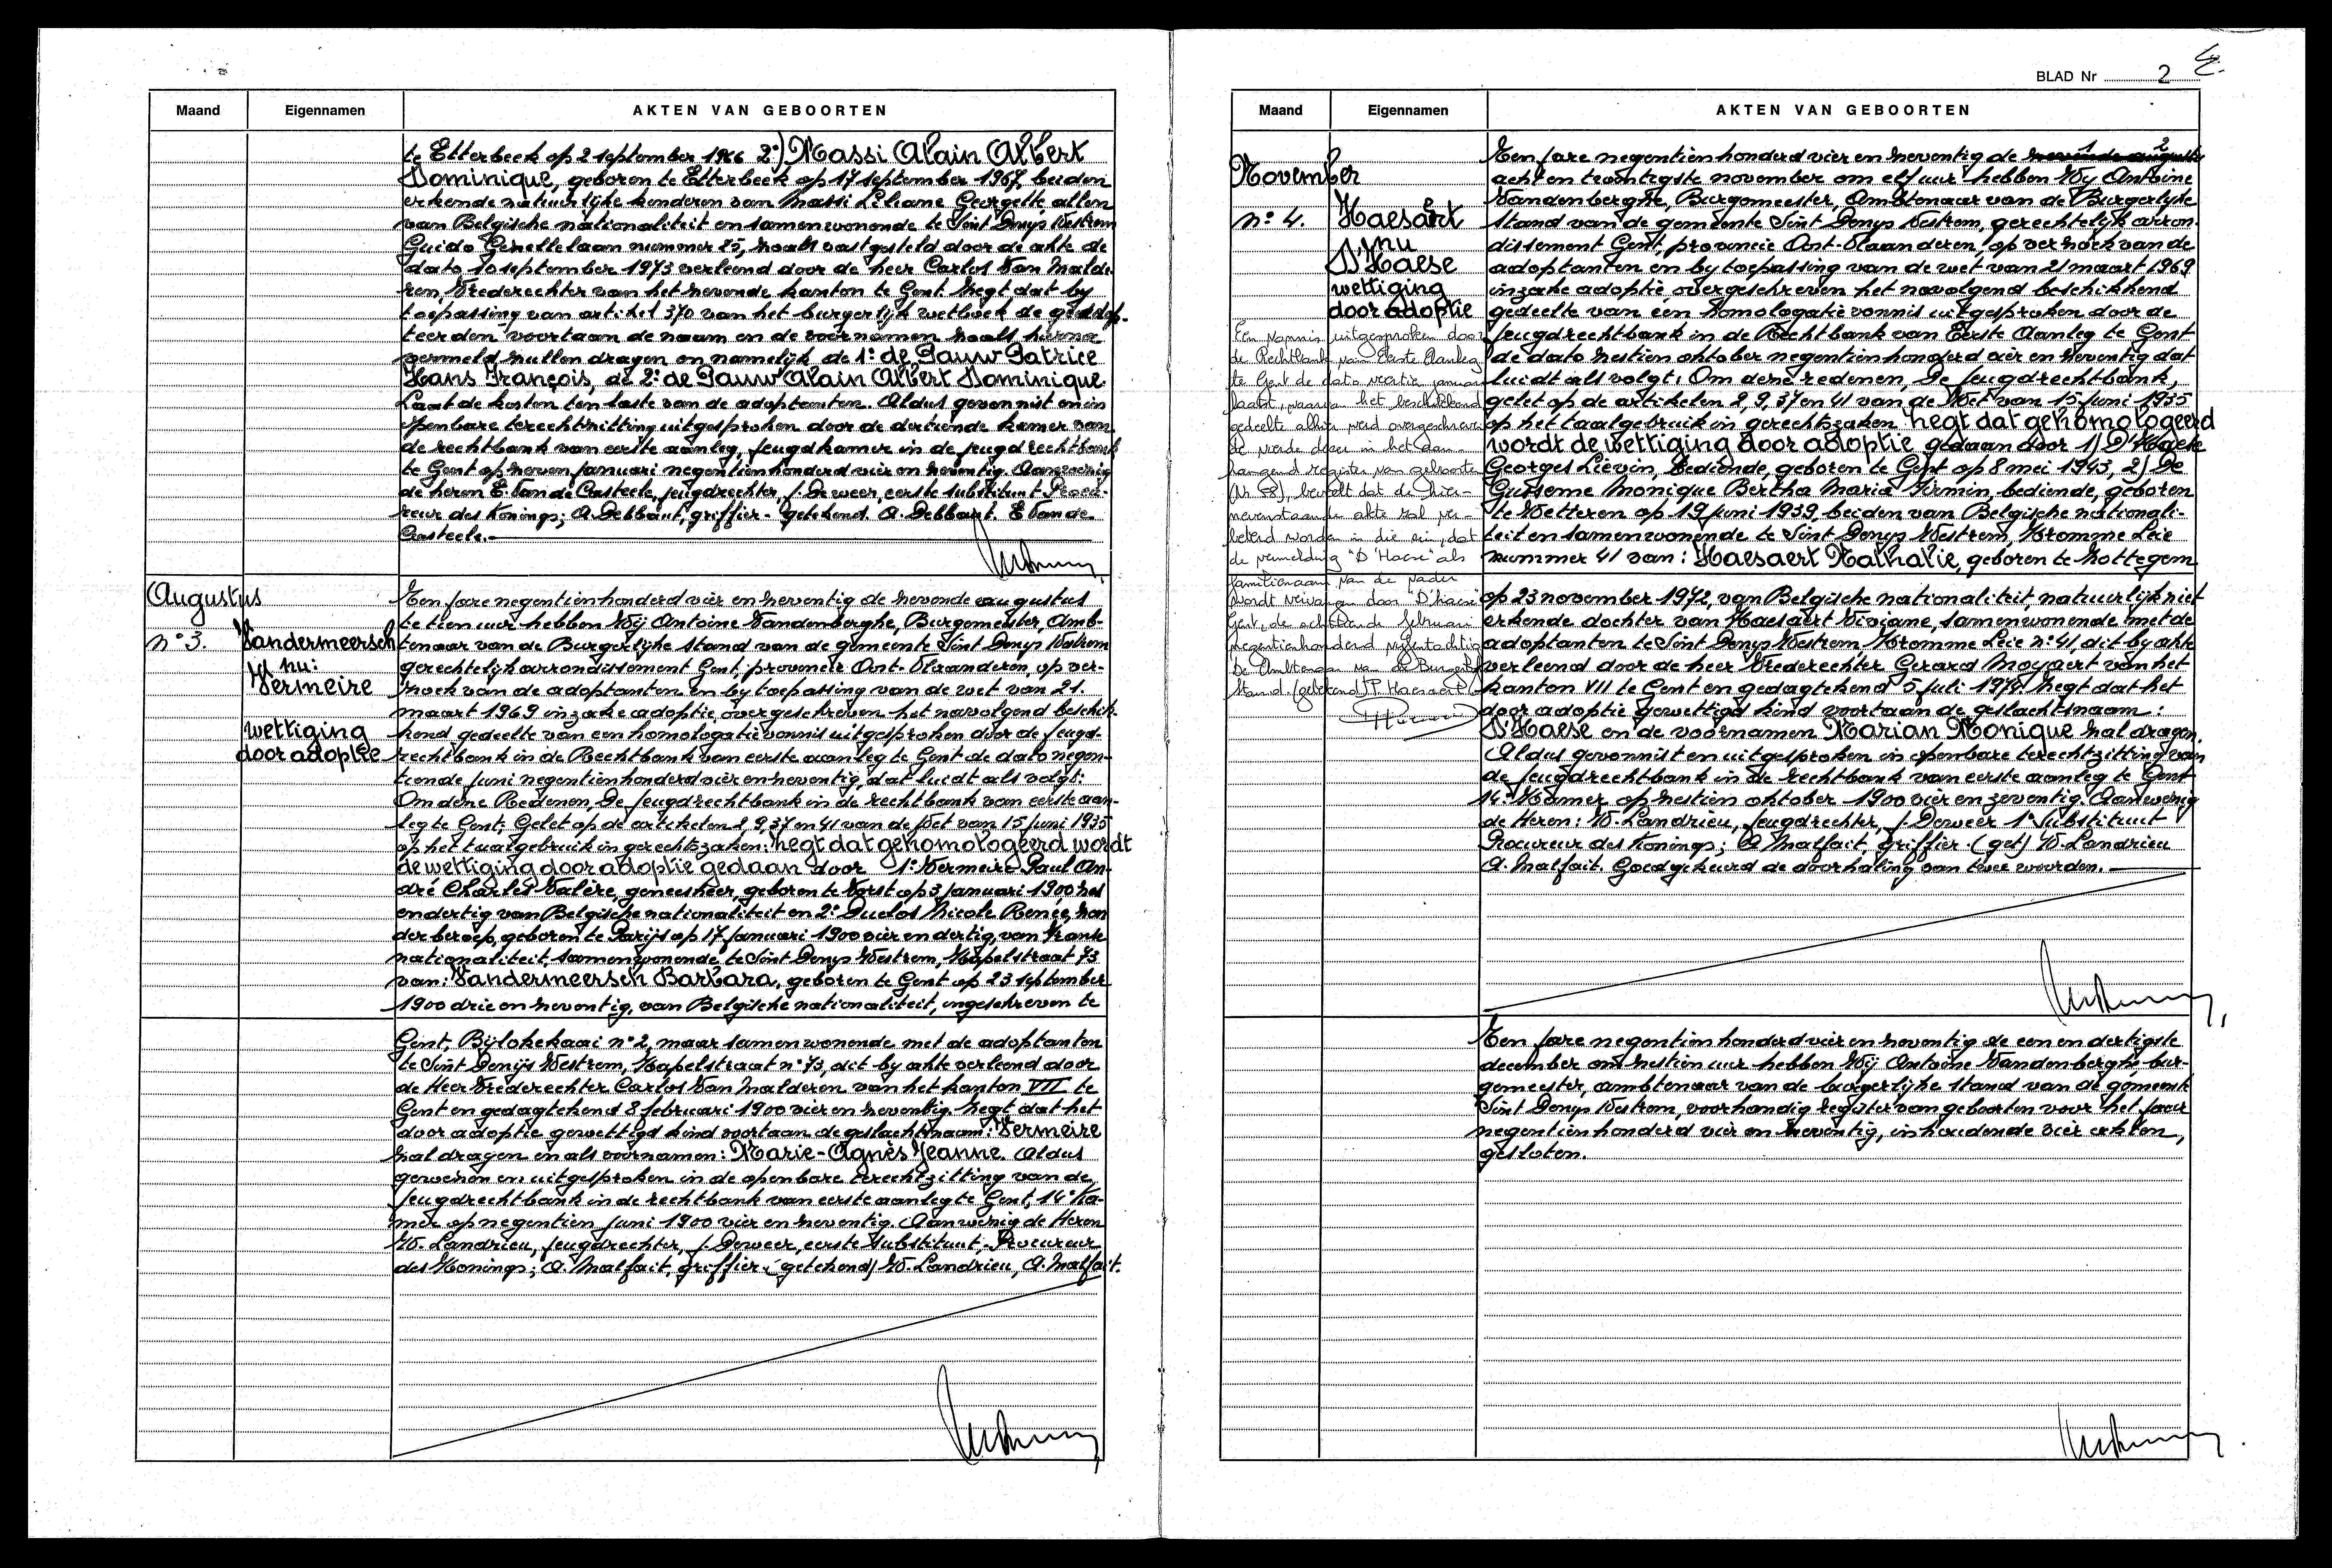 Maand Eigennamen AKTEN VAN GEBOORTEN
te Etterbeek op 2 september 1966 2°) Massi Alain Albert
Dominique, geboren te Etterbeek op 17 september 1967, beiden
erkende natuurlijke kinderen van Massi Liliane Georgette, allen
van Belgische nationaliteit en samenwonende te Sint Denys Westrem
Guido Gezellelaan nummer 25, zoals vastgesteld door de akte de
dato 10 september 1973 verleend door de heer Carlos Van Malde-
ren, Vrederechter van het zevende kanton te Gent. Zegt dat by
toepassing van artikel 370 van het burgerlijk wetboek de geadop-
teerden voortaan de naam en de voornamen zoals hierna
vermeld zullen dragen en namelijk de 1° de Pauw Patrice
Hans François, de 2° de Pauw Alain Albert Dominique.
Laat de kosten ten laste van de adoptanten. Aldus gevonnist en in
openbare terechtzitting uitgesproken door de dertiende kamer van
de rechtbank van eerste aanleg, jeugdkamer in de jeugdrechtbank
te Gent op zeven januari negentienhonderd vier en zeventig. Aanwezig
de heren E. Van de Casteele, jeugdrechter, J. Deweer, eerste substituut-Procu-
reur des Konings; A. Debbaut, griffier - getekend. A. Debbaut. E Van de
Casteele.
Augustus
n° 3.
Vandermeersch
nu:
Vermeire
wettiging
door adoptie
Ten jare negentienhonderd vier en zeventig de zevende augustus
te tien uur hebben Wij Antoine Vandenberghe, Burgemeester, Amb-
tenaar van de Burgerlijke stand van de gemeente Sint Denys Westrem
gerechtelijk arrondissement Gent, provincie Oost-Vlaanderen, op ver-
zoek van de adoptanten en bij toepassing van de wet van 21.
maart 1969 inzake adoptie, overgeschreven het navolgend beschik-
kend gedeelte van een homologatievonnis uitgesproken door de jeugd-
rechtbank in de Rechtbank van eerste aanleg te Gent de dato negen-
tiende juni negentienhonderd vier en zeventig, dat luidt als volgt:
Om dene Redenen, De jeugdrechtbank in de rechtbank van eerste aan-
leg te Gent; Gelet op de artikelen 2, 9, 37 en 41 van de Wet van 15 juni 1935
op het taalgebruik in gerechtszaken: zegt dat gehomologeerd wordt
de wettiging door adoptie gedaan door 1° Vermeire Paul An-
dré Charles Valère, geneesheer, geboren te Vorst op 3 januari 1900 zes
en dertig van Belgische nationaliteit en 2° Duclos Nicole Renée, zon
der beroep, geboren te Parijs op 17 januari 1900 vier en dertig, van Franse
nationaliteit, samenwonende te Sint Denys Westrem, Kapelstraat 73
van: Vandermeersch Barbara, geboren te Gent op 23 september
1900 drie en zeventig, van Belgische nationaliteit, ingeschreven te
Gent, Bijlokekaai n° 2, maar samenwonende met de adoptanten
te Sint Denijs Westrem, Kapelstraat n° 73, dit by akte verleend door
de Heer Vrederechter Carlos Van Malderen van het kanton VII te
Gent en gedagtekend 8 februari 1900 vier en zeventig. Zegt dat het
door adoptie gewettigd kind voortaan de geslachtsnaam: Vermeire
zal dragen en als voornamen: Marie-Agnès Jeanne. Aldus
gewezen en uitgesproken in de openbare terechtzitting van de
jeugdrechtbank in de rechtbank van eerste aanleg te Gent, 14° Ka-
mer op negentien juni 1900 vier en zeventig. Aanwezig de Heren
W. Landrieu, jeugdrechter, J. Deweer, eerste Substituut-Procureur
des Konings; A. Malfait, griffier (getekend) W. Landrieu, A. Malfait.
BLAD Nr 2
Maand Eigennamen AKTEN VAN GEBOORTEN
November
n° 4.
Haesaert
nu
D'Haese
wettiging
door adoptie
Een vonnis uitgesproken door
de Rechtbank van Eerste Aanleg
te Gent de dato veertien januari
laatst, waarvan het beschikkend
gedeelte alhier werd overgeschreven
de vierde deser in het aan-
hangend register van geboorte
(Nr 58), beveelt dat de hier-
nevenstaande akte zal ver-
beterd worden in die zin, dat
de vermelding "D'Haese" als
familienaam van de vader
wordt vervangen door "D'haese
Gent, de achttiende februari
negentienhonderd negentachtig
De Ambtenaar van de Burgerlijke
Stand (getekend) P. Haesaert
Ten jare negentienhonderd vier en zeventig de zevende augustus
acht en twintigste november om elf uur hebben Wy Antoine
Vandenberghe, Burgemeester, Ambtenaar van de Burgerlijke
stand van de gemeente Sint Denys Westrem, gerechtelijk arron-
dissement Gent, provincie Oost-Vlaanderen, op verzoek van de
adoptanten en by toepassing van de wet van 21 maart 1969
inzake adoptie, overgeschreven het navolgend beschikkend
gedeelte van een homologatievonnis uitgesproken door de
jeugdrechtbank in de Rechtbank van Eerste Aanleg te Gent
de dato zestien oktober negentienhonderd vier en zeventig dat
luidt als volgt: Om dene redenen, De jeugdrechtbank,
gelet op de artikelen 2, 9, 37 en 41 van de Wet van 15 juni 1935
op het taalgebruik in gerechtszaken zegt dat gehomologeerd
wordt de wettiging door adoptie gedaan door 1) D'Haese
Georges Liévin, bediende, geboren te Gent op 8 mei 1943, 2) De
Guisseme Monique Bertha Maria Firmin, bediende, geboren
te Wetteren op 19 juni 1939, beiden van Belgische nationali-
teit en samenwonende te Sint Denys Westrem, Kromme Leie
nummer 41 van: Haesaert Nathalie, geboren te Zottegem
op 23 november 1972, van Belgische nationaliteit, natuurlijk niet
erkende dochter van Haesaert Viviane, samenwonende met de
adoptanten te Sint Denys Westrem Kromme Leie n° 41, dit by akte
verleend door de heer Vrederechter Gerard Moyaert van het
kanton VII te Gent en gedagtekend 5 juli 1974. Zegt dat het
door adoptie gewettigd kind voortaan de geslachtsnaam:
D'Haese en de voornamen Marian Monique zal dragen.
Aldus gevonnist en uitgesproken in openbare terechtzitting van
de jeugdrechtbank in de rechtbank van eerste aanleg te Gent
14° Kamer op zestien oktober 1900 vier en zeventig. Aanwezig
de Heren: W. Landrieu, jeugdrechter, J. Deweer 1° Substituut
Procureur des Konings; A Malfait, griffier. (get) W. Landrieu
A. Malfait. Goedgekeurd de doorhaling van twee woorden.
Ten jare negentienhonderd vier en zeventig de een en dertigste
december om zestien uur hebben Wij Antoine Vandenberghe, bur-
gemeester, ambtenaar van de burgerlijke stand van de gemeente
Sint Denys Westrem, voorhandig register van geboorten voor het jaar
negentienhonderd vier en zeventig, inhoudende vier akten,
gesloten.